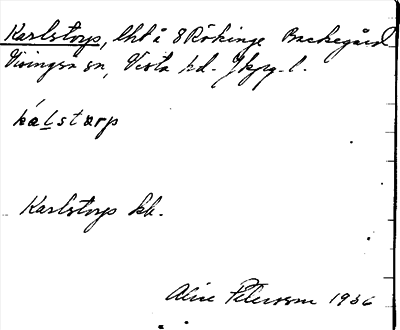 Karlstorp, lht å 8 Rökinge Backegård
Visingsö sn, Vista hd. Jkpg. l.
kálstərp
Karlstorp kb.
Alice Petersson 1936